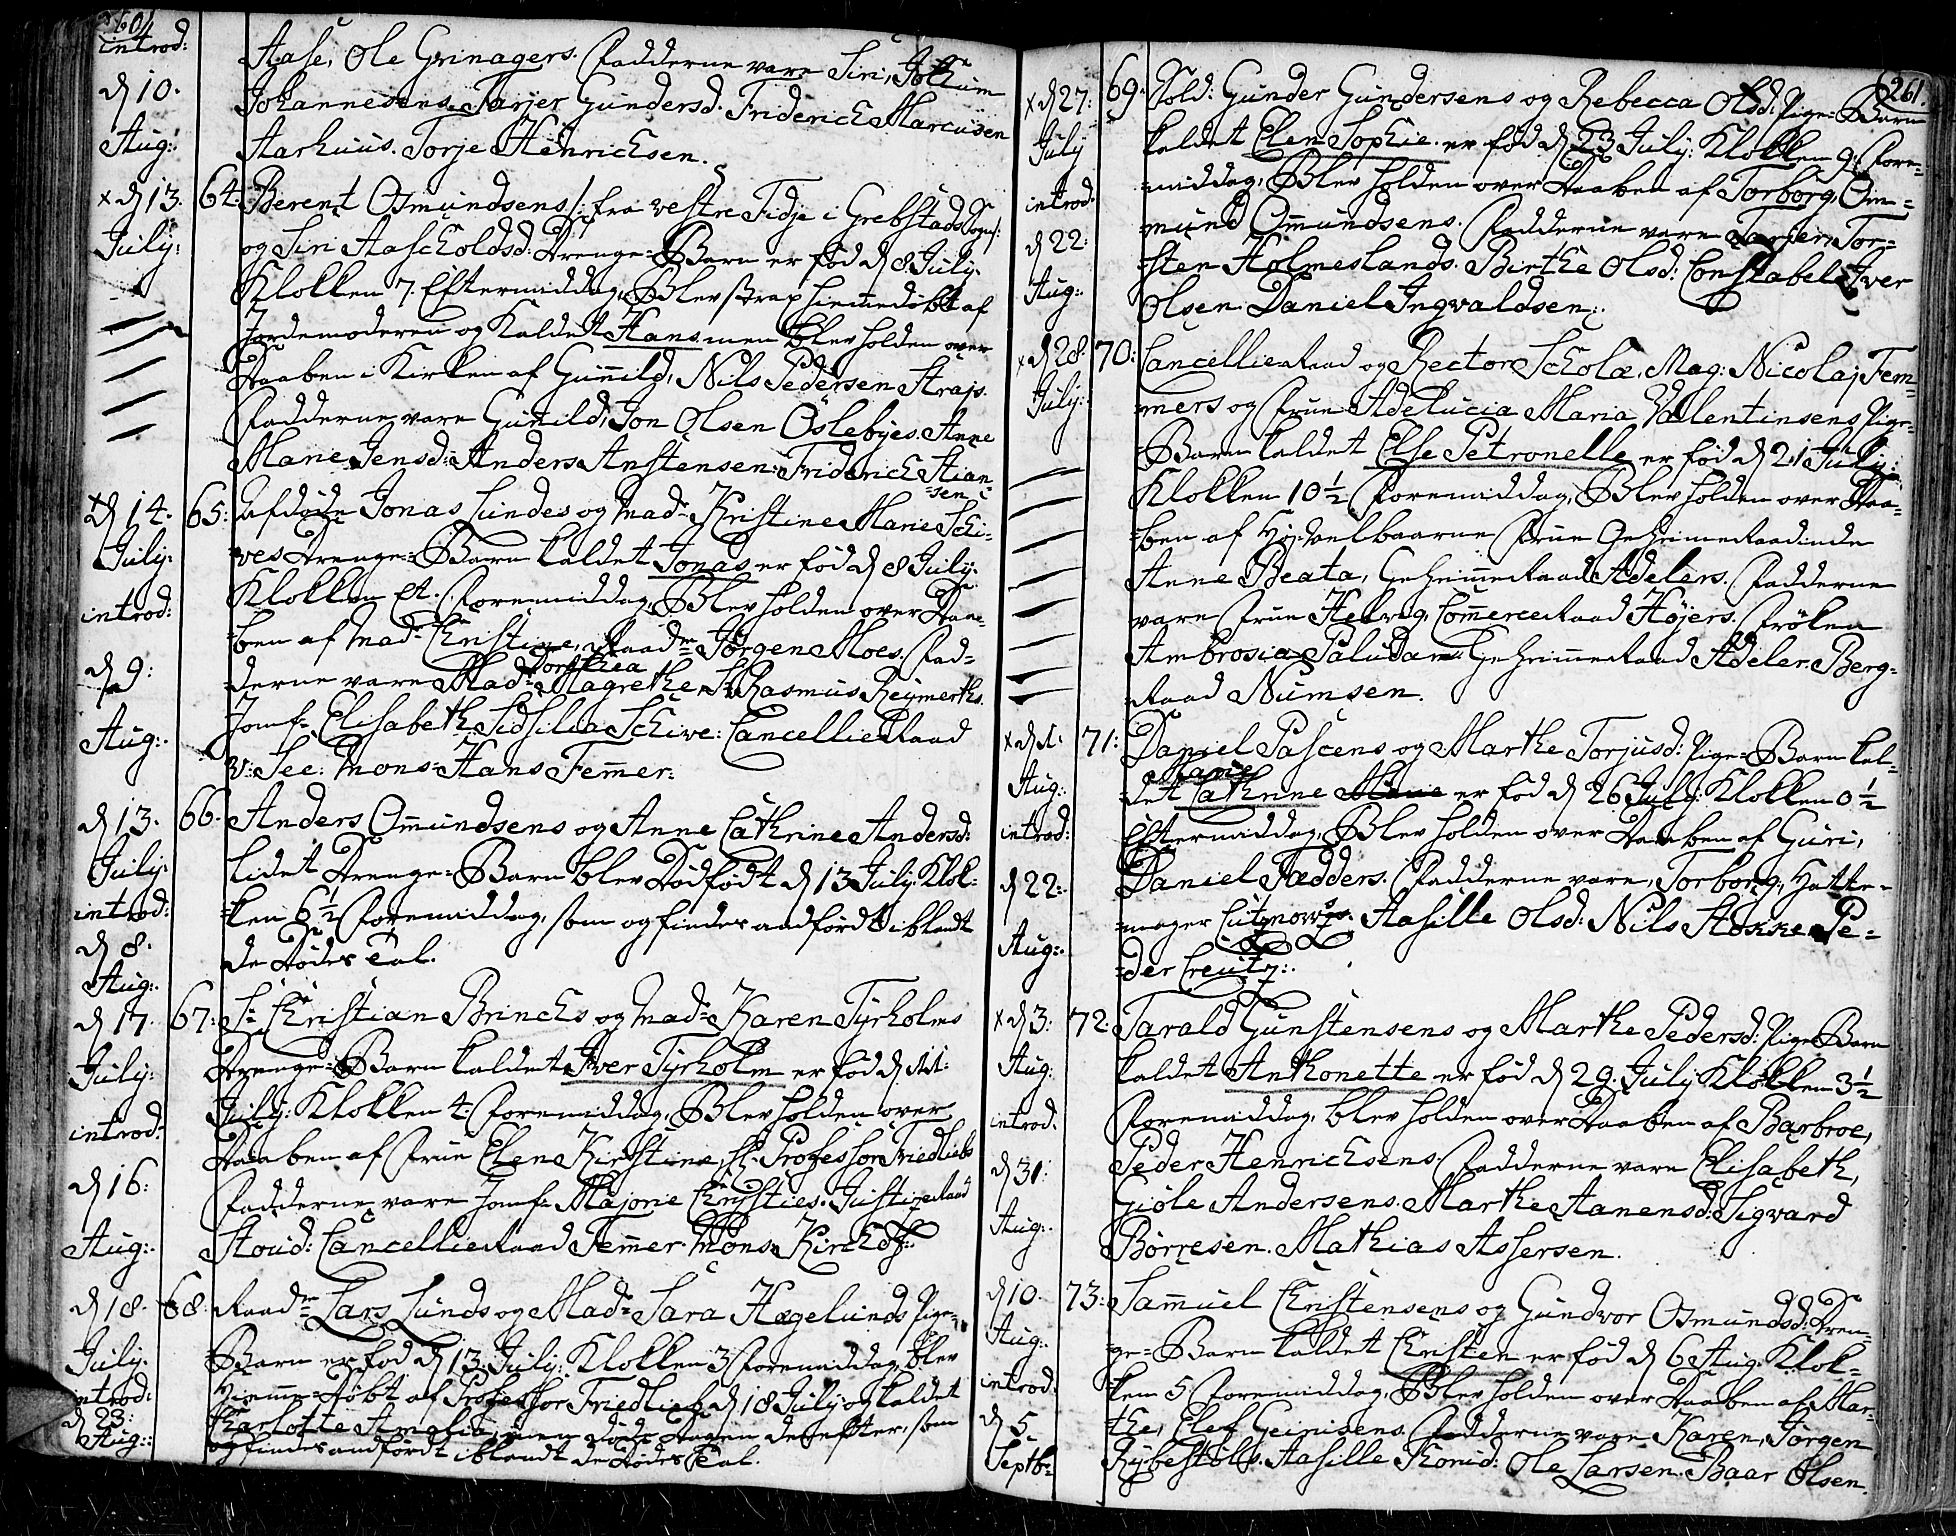 260
introd:
d 10.
Aug:
Aase, Ole Grinagers. Fadderne vare Siri, Jochum
Johannesens. Tarjer Gundersd. Friderich Marcusen
Aarhuus. Torje Henrichsen.
x d 13. July: 64. Berent Osmundsens /: fra vestre Tidje i Grebstad Sogn:/
og Siri Aascholdsd: Drenge-Barn er fød d 8 July.
Klokken 7. Eftermiddag, Blev strax hiemedøbt af
Jordemoderen og kaldet Hans. men blev holden over
Daaben i Kirken af Gunnild, Nils Pedersen Strajs.
Fadderne vare Gunild, Jon Olsen Oslebyes. Anne
Marie Jensd: Anders Anstensen. Friderich Stian-
-sen.
x d 14. July. introd: d 9: Aug: 65: Afdøde Jonas Lundes og Mad: Kristine Marie Schi-
ves Drenge-Barn kaldet Jonas er fød d 8 July.
Klokken et. Foremiddag. Blev holden over Daa-
ben af Mad: Christine, Raadm: Jørgen Moes. Fad-
derne vare Mad: Dorthea Magrethe, Sr Rasmus Reymerths.
Jomf: Elisabeth Sidsilia Schive: Cancellie Raad
v: See: Mons: Hans Femer:
d 13. July. introd: d 8. Aug: 66. Anders Omundsens og Anne Cathrine Andersd:
lidet Drenge-Barn blev Dødfødt d 13 July. Klok-
ken 6½ Foremiddag, som og findes andført iblandt
de Dødes Tal.
d 17. July: introd: d 16: Aug: 67: Sr Christian Brinchs og Mad: Karen Tyrholms
Drenge-Barn kaldet Iver Tyrholm er fød d 11.
July: Klokken 4. Foremiddag, Blev holden over
Daaben af Frue Elen Kirstine, Hr Professor Friedliebs
Fadderne vare Jomf: Majorie Christies. Justize Raad
Stoud: Cancellie Raad Femer. Mons. Kirchof:
d 18. July. introd: d 23: Aug: 68: Raadm: Lars Lunds og Mad: Sara Hægelunds Pige-
Barn er fød d 13. July: Klokken 3 Foremiddag, blev
Hiemme-Døbt af Professor Friedlieb d 18 July og kaldet
Charlotte Amalia, men døde Dagen derefter, som
og findes andfördt iblandt de Dødes Tal.
261.
x d 27. July introd. d 22. Aug: 69. Sold: Gunder Gundersens og Rebecca Olsd: Pige-Barn
kaldet Elen Sophie. er fød d 23 July: Klokken 9. Fore-
-middag, Blev holden over Daaben af Torborg, Om-
mund Ommundsens. Fadderne vare Tarjer, Tor-
-sten Holmeslands. Birthe Olsd: Constabel Iver
Olsen. Daniel Ingvaldsen:.
x d 28. July: 70: Cancellie Raad og Rector Scholæ, Mag: Nicolaj Fem-
mers og Frue Adelucia Maria Vallentinsens Pige-
-Barn kaldet Else Petronelle er fød d 21 July:
Klokken 10½ Foremiddag, Blev holden over Daa-
-ben af Høj-velbaarne Frue Geheime Raadinde
Anne Beata, Geheime Raad Adelers. Fadderne
vare Frue Helvig, Commerce Raad Höjers. Frøken
Ambrosia Paludan. Geheime Raad Adeler. Berg-
Raad Numsen.
x d 1. Aug: introd: d 22: Aug: 71: Daniel Pascens og Marthe Torjusd: Pige-Barn kal-
det Marie Cathrine er fød d 26 July: Klokken 0½
Eftermiddag, Blev holden over Daaben af Guri,
Daniel Fædders. Fadderne vare, Torborg, Hatte-
-mager Cützows. Aasille Olsd: Nils Stokke. Pe-
-der Creutz:.
x d 3: Aug: introd. d 31: Aug: 72. Tarald Gunstensens og Marthe Pedersd: Pige Barn
kaldet Anthonette er fød d 29. July Klokken 3½
Foremiddag, blev holden over Daaben af Barbroe,
Peder Henrichsens. Fadderne vare Elisabeth,
Giöle Andersens. Marthe Aanensd: Sigvard
Börresen. Mathias Assersen.
d 10. Aug: introd: d 5. Septb: 73: Sammuel Christensens og Gundvor Osmundsd: Dren-
ge-Barn kaldet Christen er fød d 6 Aug: Klok-
ken 5 Foremiddag. Blev holden over Daaben af Mar-
-the, Elef Geruisens. Fadderne vare Karen, Jørgen
Rybestöls. Aasille Konid: Ole Larsen. Baar Olsen.